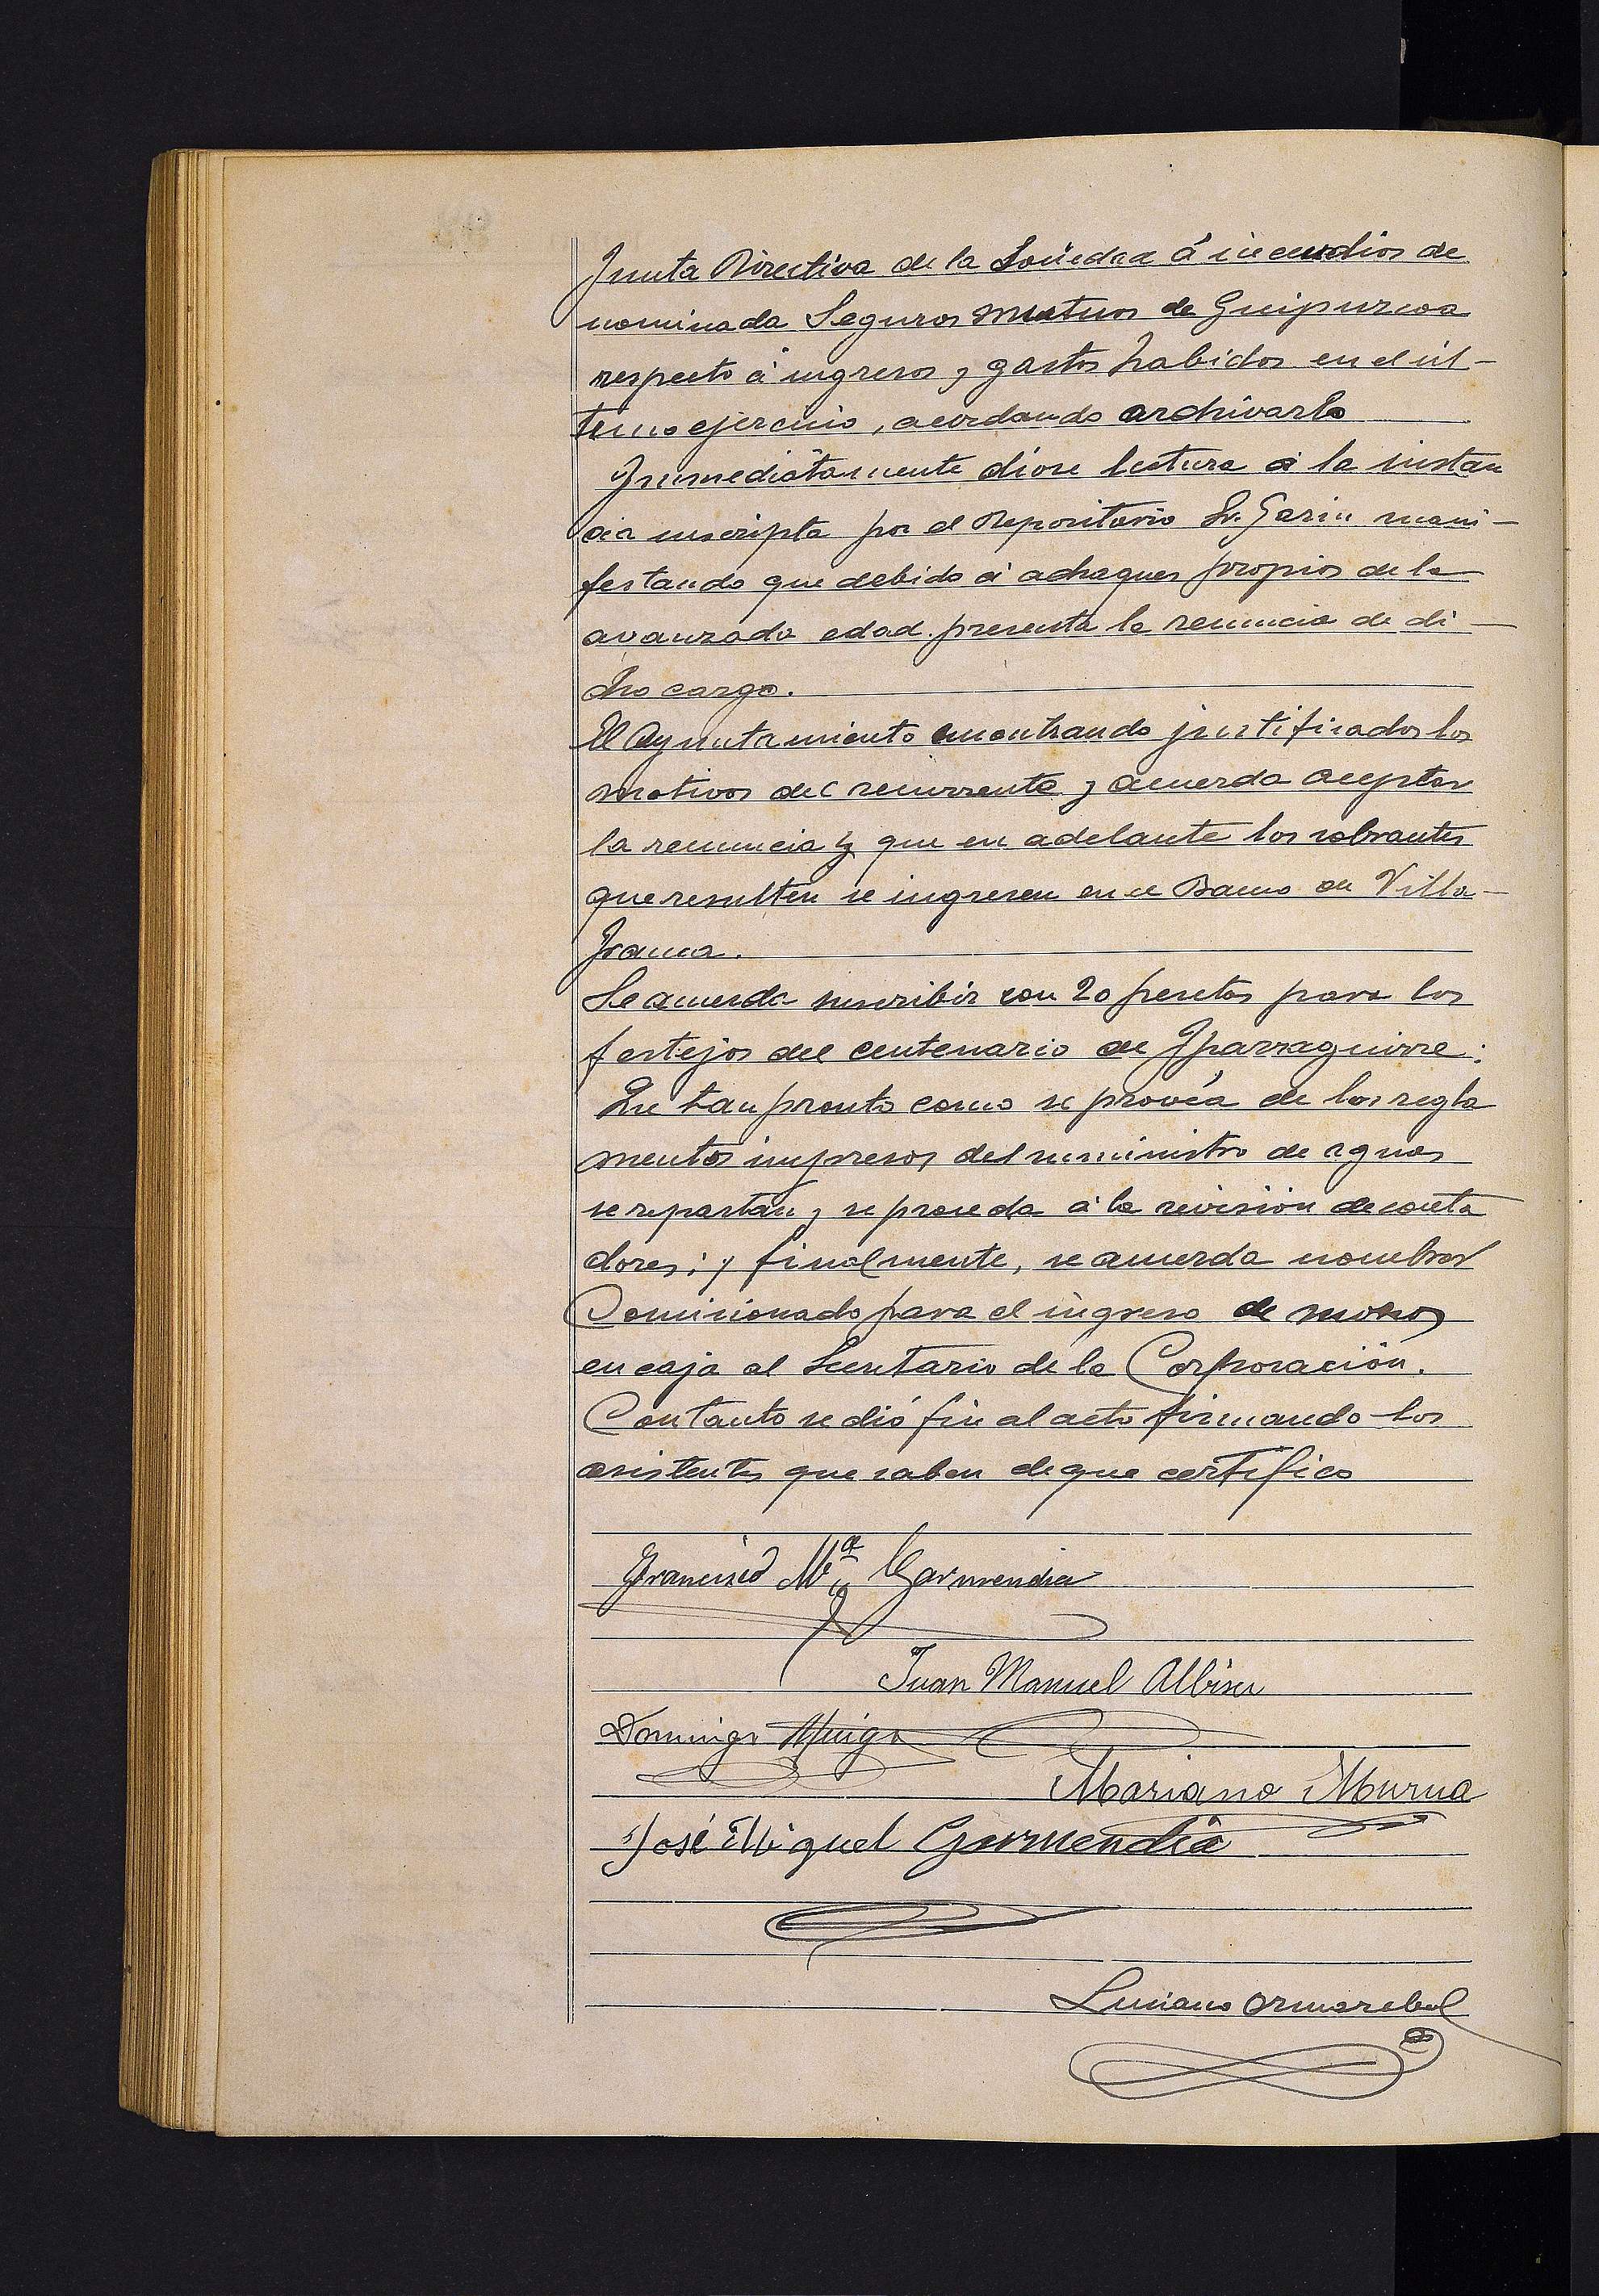 Junta Directiva de la Sociedad á incendios de
nominada Seguros Mutuos de Guipuzcoa
respecto á ingresos y gastos habidos en el úl-
timo ejercicio, acordando archivarlo
Inmediatamente dióse lectura á la instan
cia suscripta por el Depositario Sr. Garin mani-
festando que debido á achaques propios de la
avanzada edad presenta la renuncia de di-
cho cargo.
El Ayuntamiento encontrando justificados los
motivos del recurrente y acuerda aceptar
la renuncia y que en adelante los sobrantes
que resulten se ingresen en el Banco de Villa-
franca.
Se acuerda suscribir con 20 pesetas para los
festejos del centenario de Iparraguirre:
Que tan pronto como se provéa de los regla
mentos impresos del suministro de aguas
se repartan y se proceda á la revisión de conta
dores; y finalmente, se acuerda nombrar
Comisionado para el ingreso de mozos
en caja al Secretario de la Corporación.
Con tanto se dió fin al acto firmando los
asistentes que saben de que certifico
Francisco Mª Garmendia
Juan Manuel Albisu
Domingo
Mariano Murua
José Miguel Garmendia
Luciano Ormazabal